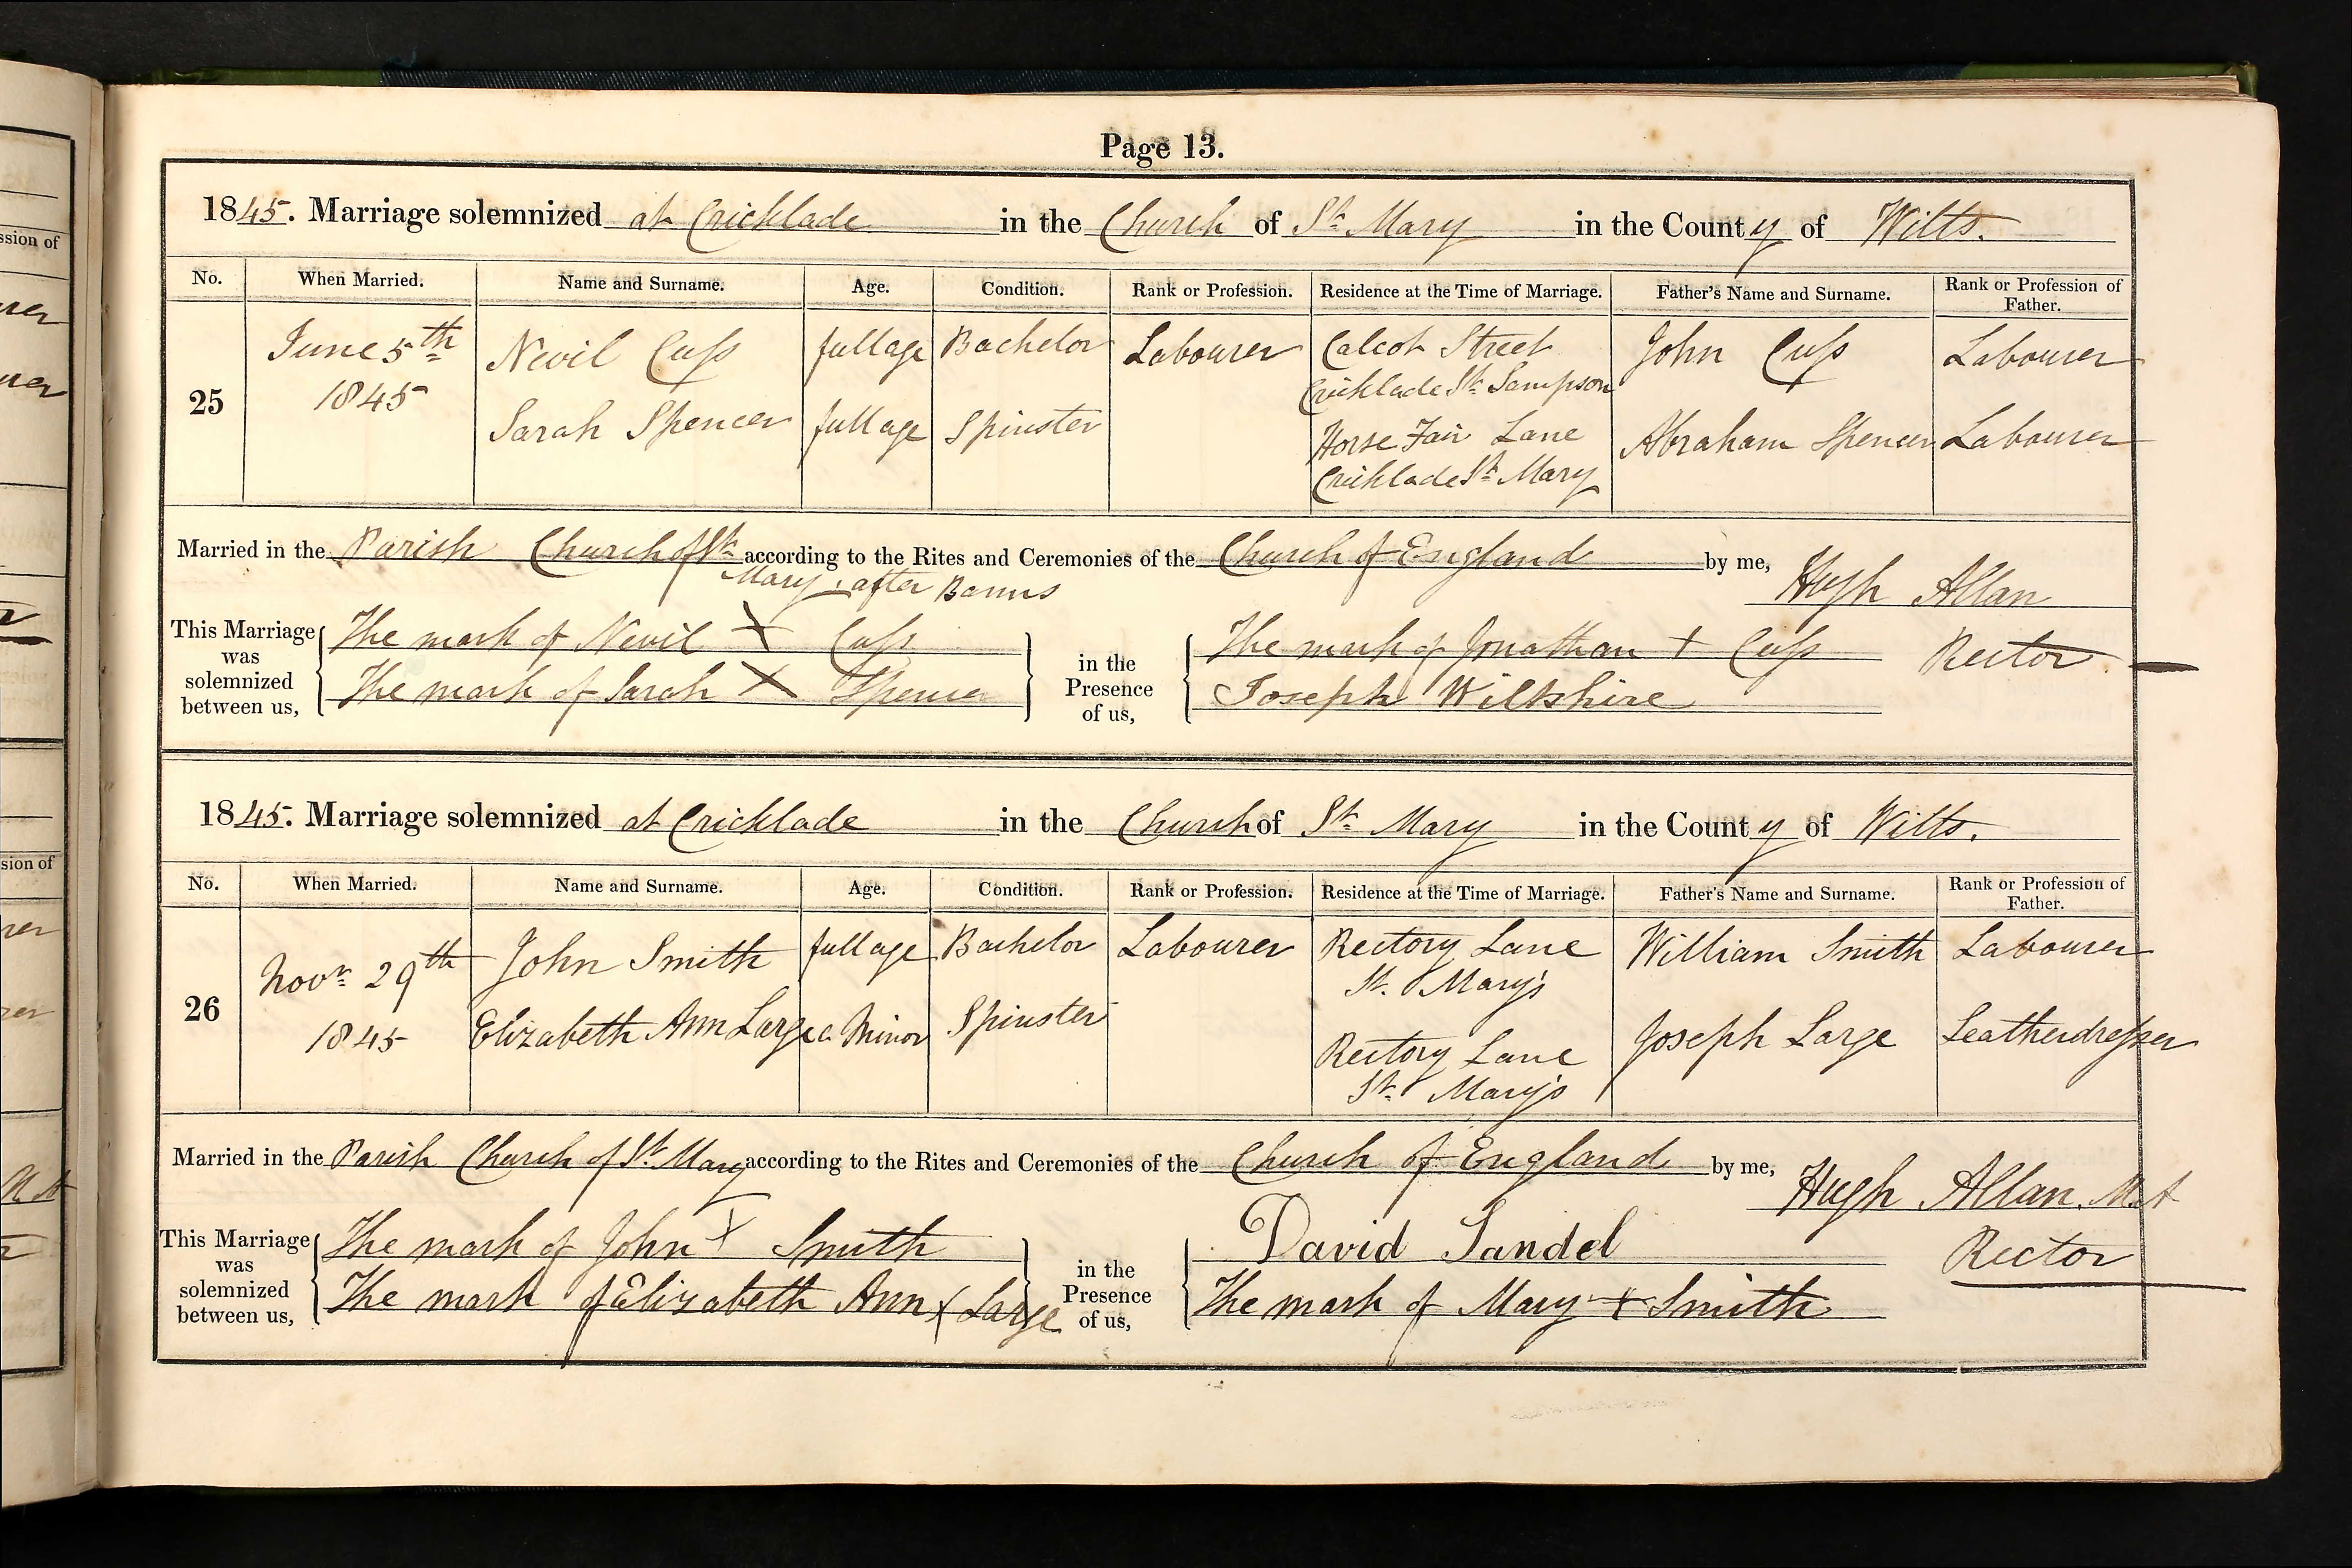 Page 13.
1845. Marriage solemnized at Cricklade in the Church of St. Mary in the County of Wilts.
No. When Married. Name and Surname. Age. Condition. Rank or Profession. Residence at the Time of Marriage. Father's Name and Surname. Rank or Profession of Father.
25 June 5th 1845 Nevil Cuſs full age Bachelor Labourer Calcot Street Cricklade St. Sampson John Cuſs Labourer
Sarah Spencer full age Spinster Horse Fair Lane Cricklade St. Mary Abraham Spencer Labourer
Married in the Parish Church of St. Mary after Banns according to the Rites and Ceremonies of the Church of England by me, Hugh Allan
Rector
This Marriage was solemnized between us, The mark of Nevil X Cuſs
The mark of Sarah X Spencer
in the Presence of us, The mark of Jonathan + Cuſs
Joseph Wiltshire
1845. Marriage solemnized at Cricklade in the Church of St. Mary in the County of Wilts.
No. When Married. Name and Surname. Age. Condition. Rank or Profession. Residence at the Time of Marriage. Father's Name and Surname. Rank or Profession of Father.
26 Novr. 29th 1845 John Smith full age Bachelor Labourer Rectory Lane St. Mary's William Smith Labourer
Elizabeth Ann Large a Minor Spinster Rectory Lane St. Mary's Joseph Large Leatherdreſser
Married in the Parish Church of St. Mary according to the Rites and Ceremonies of the Church of England by me, Hugh Allan M.A
Rector
This Marriage was solemnized between us, The mark of John X Smith
The mark of Elizabeth Ann X Large
in the Presence of us, David Sandel
The mark of Mary + Smith